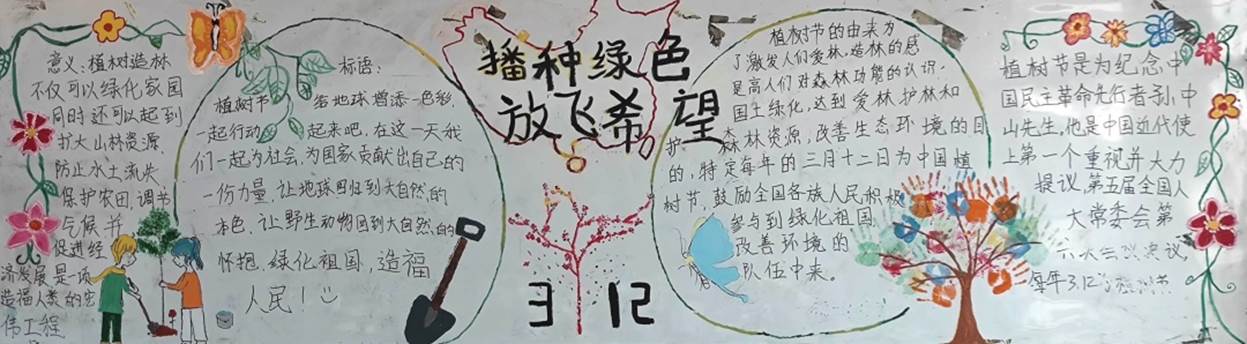 意义:植树造林
不仅可以绿化家园
同时还可以起到
扩大山林资源
防止水土流失
保护农田,调节
气候并
促进经
济发展是一项
造福人类的宏
伟工程
标语:
植树节 给地球增添一色彩,
一起行动 起来吧,在这一天我
们一起为社会,为国家贡献出自己的
一份力量,让地球回归到大自然的
本色,让野生动物回到大自然的
怀抱,绿化祖国,造福
人民!
播种绿色
放飞希望
3 12
植树节的由来为
了激发人们爱林,造林的感
是高人们对森林功能的认识,
国土绿化,达到爱林护林和
护 森林资源,改善生态环境的目
的,特定每年的三月十二日为中国植
树节,鼓励全国各族人民积极
参与到绿化祖国
改善环境的
队伍中来。
植树节是为纪念中
国民主革命先行者孙中
山先生,他是中国近代使
上第一个重视并大力
提议,第五届全国人
大常委会第
六次会议决议,
每年3.12为植树节